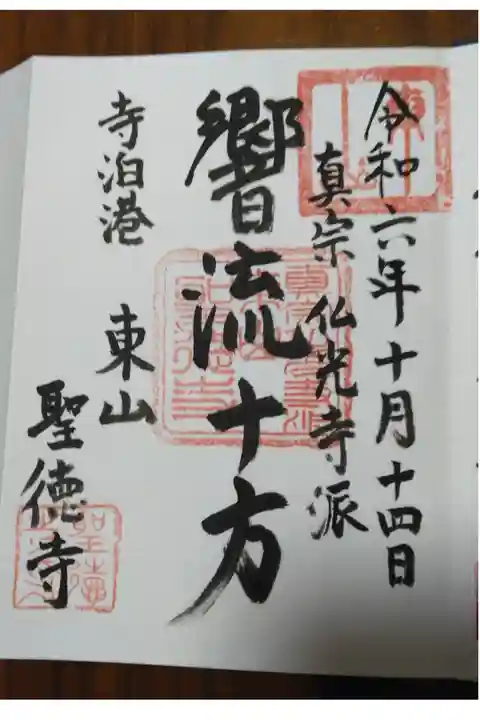 令和六年十月十四日
真宗 仏光寺派
響流十方
寺泊港 東山
聖徳寺